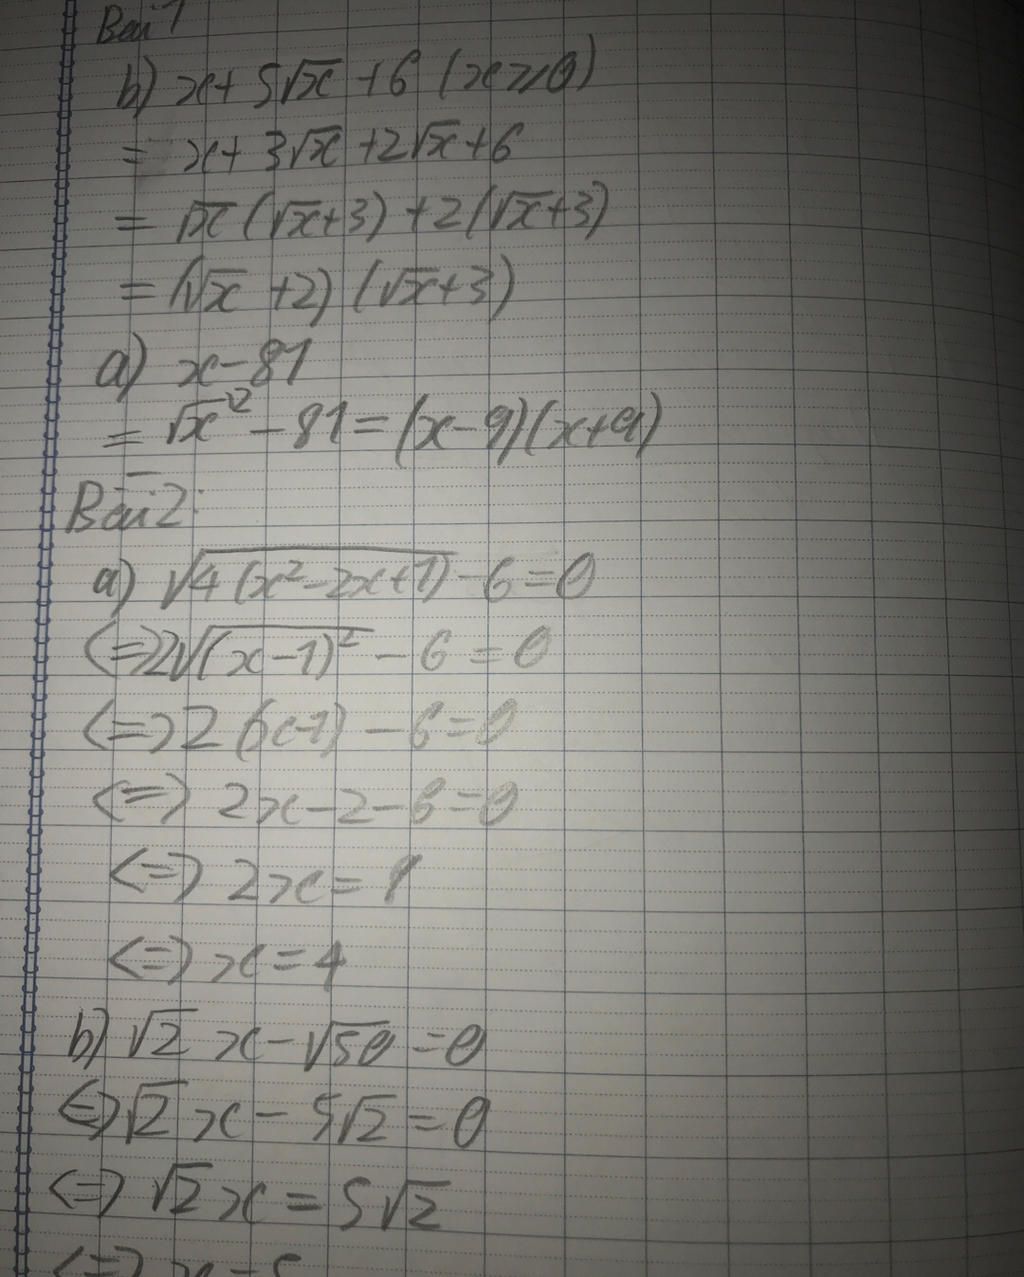 Bài 1
b) x + 5√x + 6 (x ≥ 0)
= x + 3√x + 2√x + 6
= √x (√x + 3) + 2(√x + 3)
= (√x + 2) (√x + 3)
a) x - 81
= √x² - 81 = (x - 9)(x + 9)
Bài 2:
a) √(4(x² - 2x + 1)) - 6 = 0
<=> 2√((x - 1)²) - 6 = 0
<=> 2 (x - 1) - 6 = 0
<=> 2x - 2 - 6 = 0
<=> 2x = 8
<=> x = 4
b) √2 x - √50 = 0
<=> √2 x - 5√2 = 0
<=> √2 x = 5√2
<=> x = 5